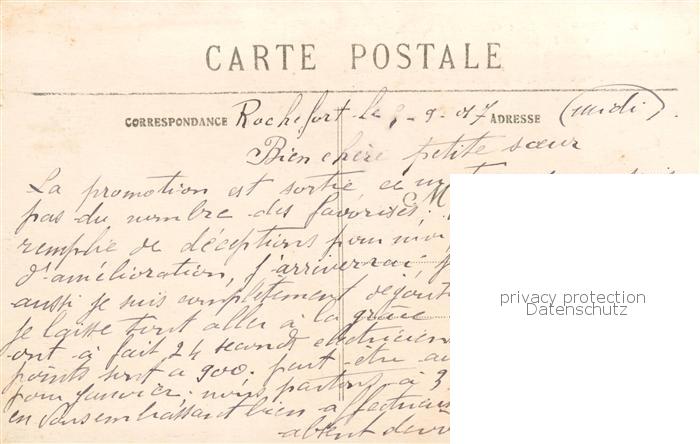 CARTE POSTALE
CORRESPONDANCE Rochefort le 5-9-07 ADRESSE (midi).
Bien chère petite sœur
La promotion est sortie ce
pas du nombre des favorisés,
M
remplie de déceptions pour moi,
d'amélioration, j'arriverrai
aussi je suis complètement dégouté
je laisse tout aller à la grâce
ont à fait 24 seconds électricien
points sont a 900. peut-être au
pour Janvier, nous partons à 3
en vous embrassant bien affectueus
privacy protection
Datenschutz